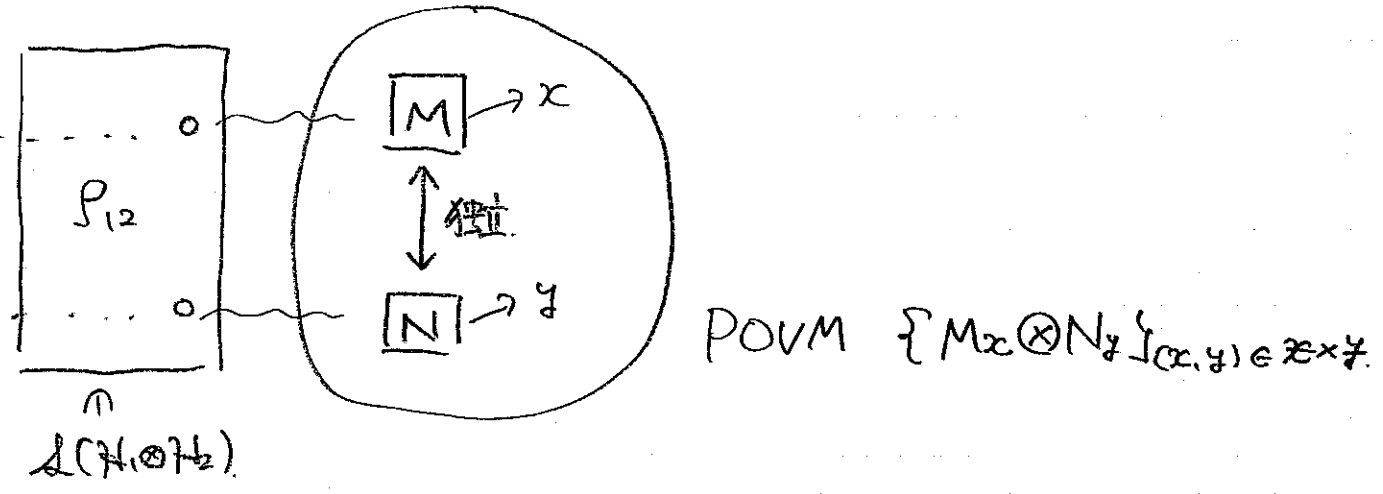 M → x
ρ₁₂
独立.
N → y
POVM {Mx⊗Ny}(x,y)∈𝒳×𝒴.
↑
𝒮(ℋ₁⊗ℋ₂).